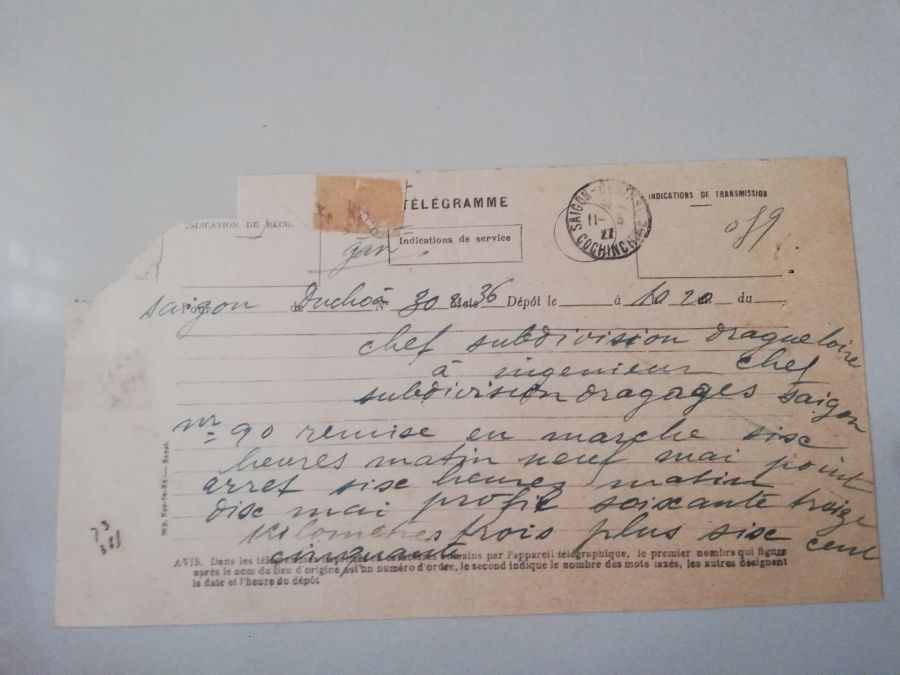 TÉLÉGRAMME
INDICATIONS DE TRANSMISSION
SAIGON-CENTRAL
COCHINCHINE
INDICATION DE RÉCE
Indications de service
Saigon de Duchoa N° 30 Mots 36 Dépôt le à 10 20 du
chef subdivision dragueloire
à ingenieur chef
subdivision dragages saigon
nr 90 remise en marche sise
heures matin neuf mai point
arret sise heures matin
disc mai profil soixante treize
kilomètres trois plus sise cent
cinquante
73
Imp. Ngo-tu-Ha — Hanoi.
AVIS. Dans les télégrammes romains par l'appareil télégraphique, le premier nombre qui figure
après le nom du lieu d'origine est un numéro d'ordre, le second indique le nombre des mots taxés, les autres désignent
la date et l'heure du dépôt